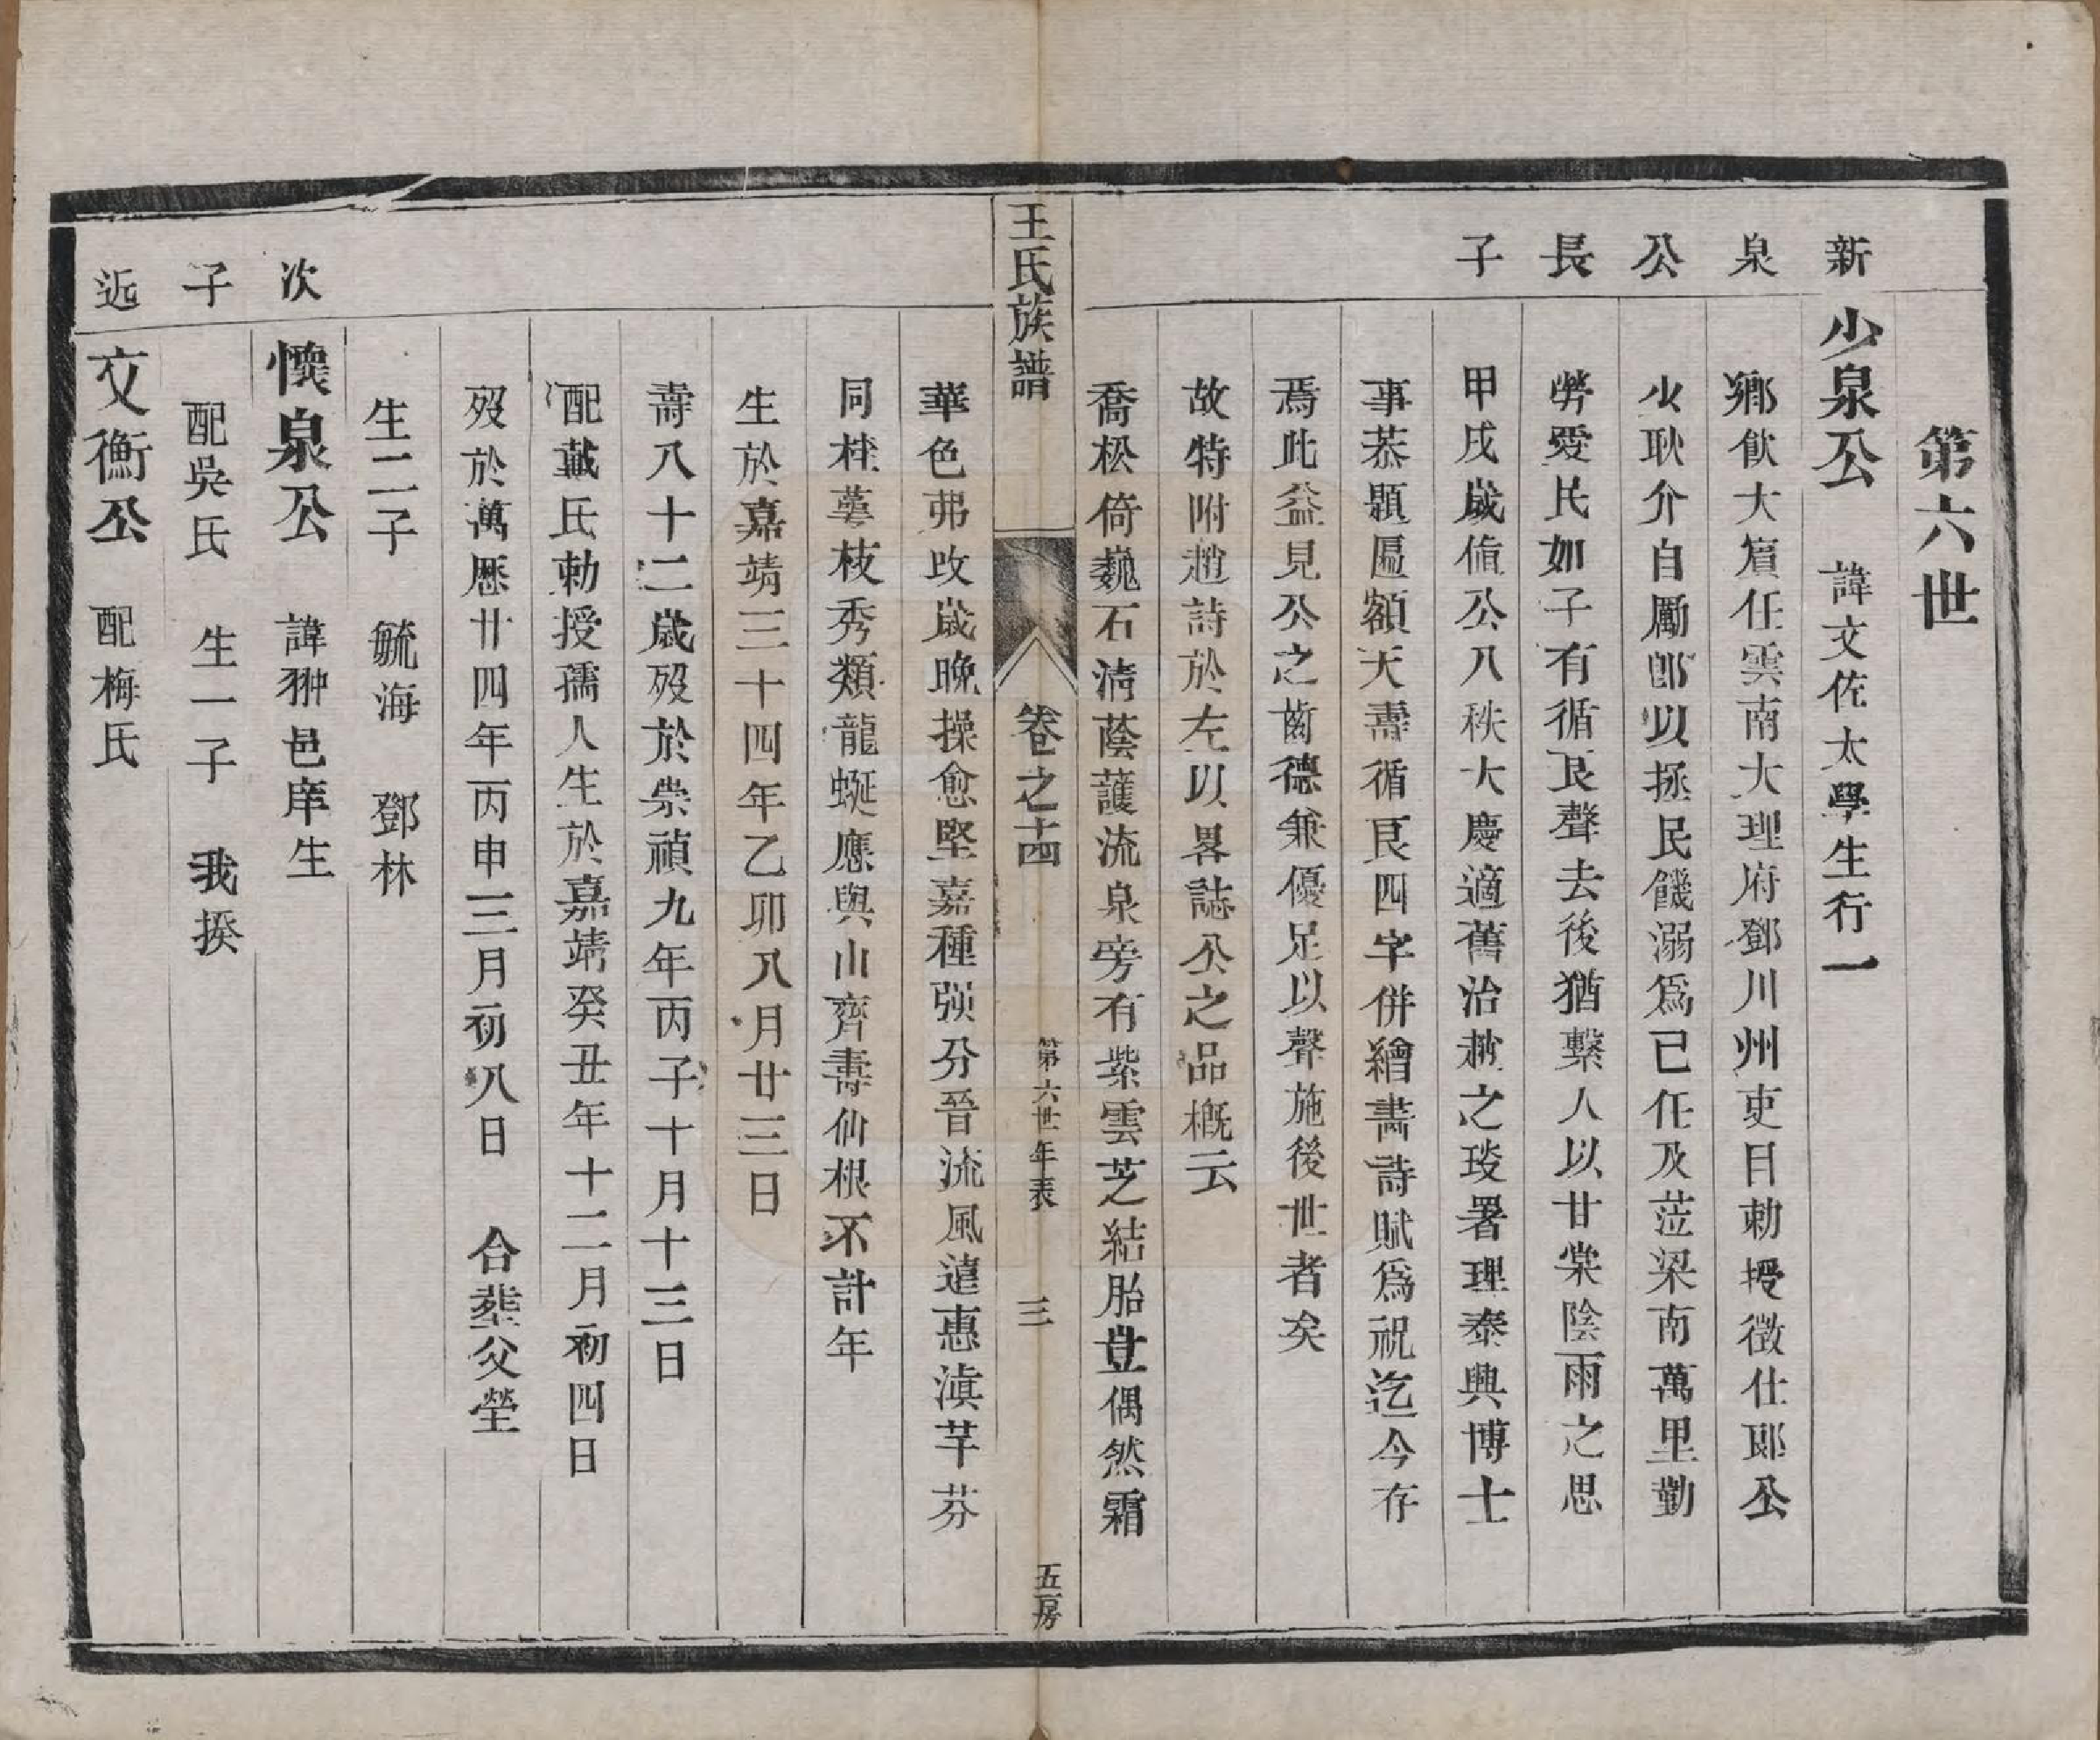 第六世
新泉公長子
少泉公　諱文佐太學生行一
鄉飲大賓任雲南大理府鄧川州吏目勅授徵仕郎公
少耿介自勵卽以拯民饑溺爲己任及蒞梁南萬里勤
勞愛民如子有循良聲去後猶繫人以甘棠陰雨之思
甲戌歲值公八秩大慶適舊治趙之琰署理泰興博士
事恭題匾額天壽循良四字併繪壽詩賦爲祝迄今存
焉此益見公之齒德兼優足以聲施後世者矣
故特附趙詩於左以畧誌公之品概云
喬松倚巍石淸蔭護流泉旁有紫雲芝結胎豈偶然霜
王氏族譜　卷之十四　第六世年表　三　五房
華色弗改歲晚操愈堅嘉種强分晉流風遠惠滇芊芬
同桂萼枝秀類龍蜒應與山齊壽仙根不計年
生於嘉靖三十四年乙卯八月廿三日
壽八十二歲歿於崇禎九年丙子十月十三日
配戴氏勅授孺人生於嘉靖癸丑年十二月初四日
歿於萬歷廿四年丙申三月初八日　合塟父塋
生二子　毓海　鄧林
次子
懷泉公　諱翀邑庠生
配吳氏　生一子　我揆
近
文衡公　配梅氏